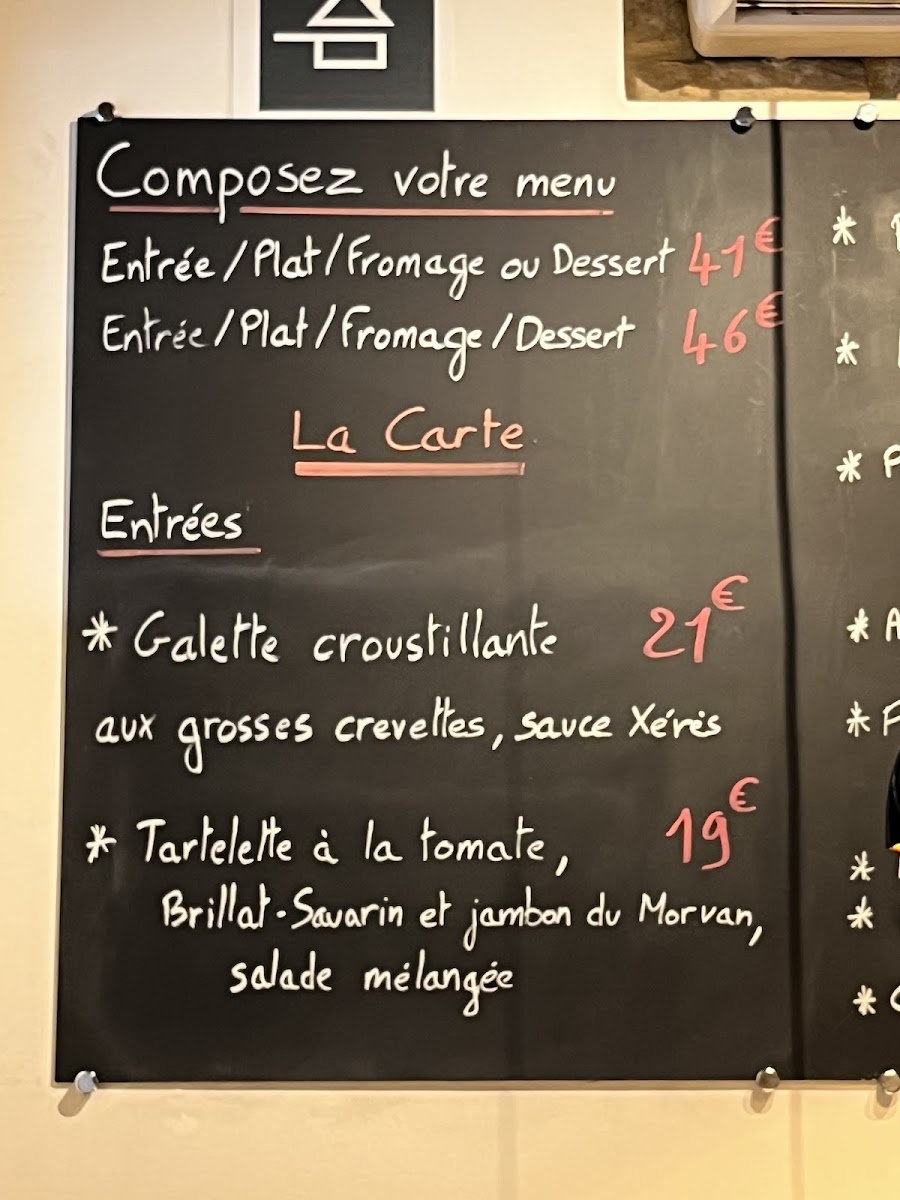 Composez votre menu
Entrée/Plat/Fromage ou Dessert 41€
Entrée/Plat/Fromage/Dessert 46€
La Carte
Entrées
* Galette croustillante 21€
aux grosses crevettes, sauce Xérès
* Tartelette à la tomate, 19€
Brillat-Savarin et jambon du Morvan,
salade mélangée